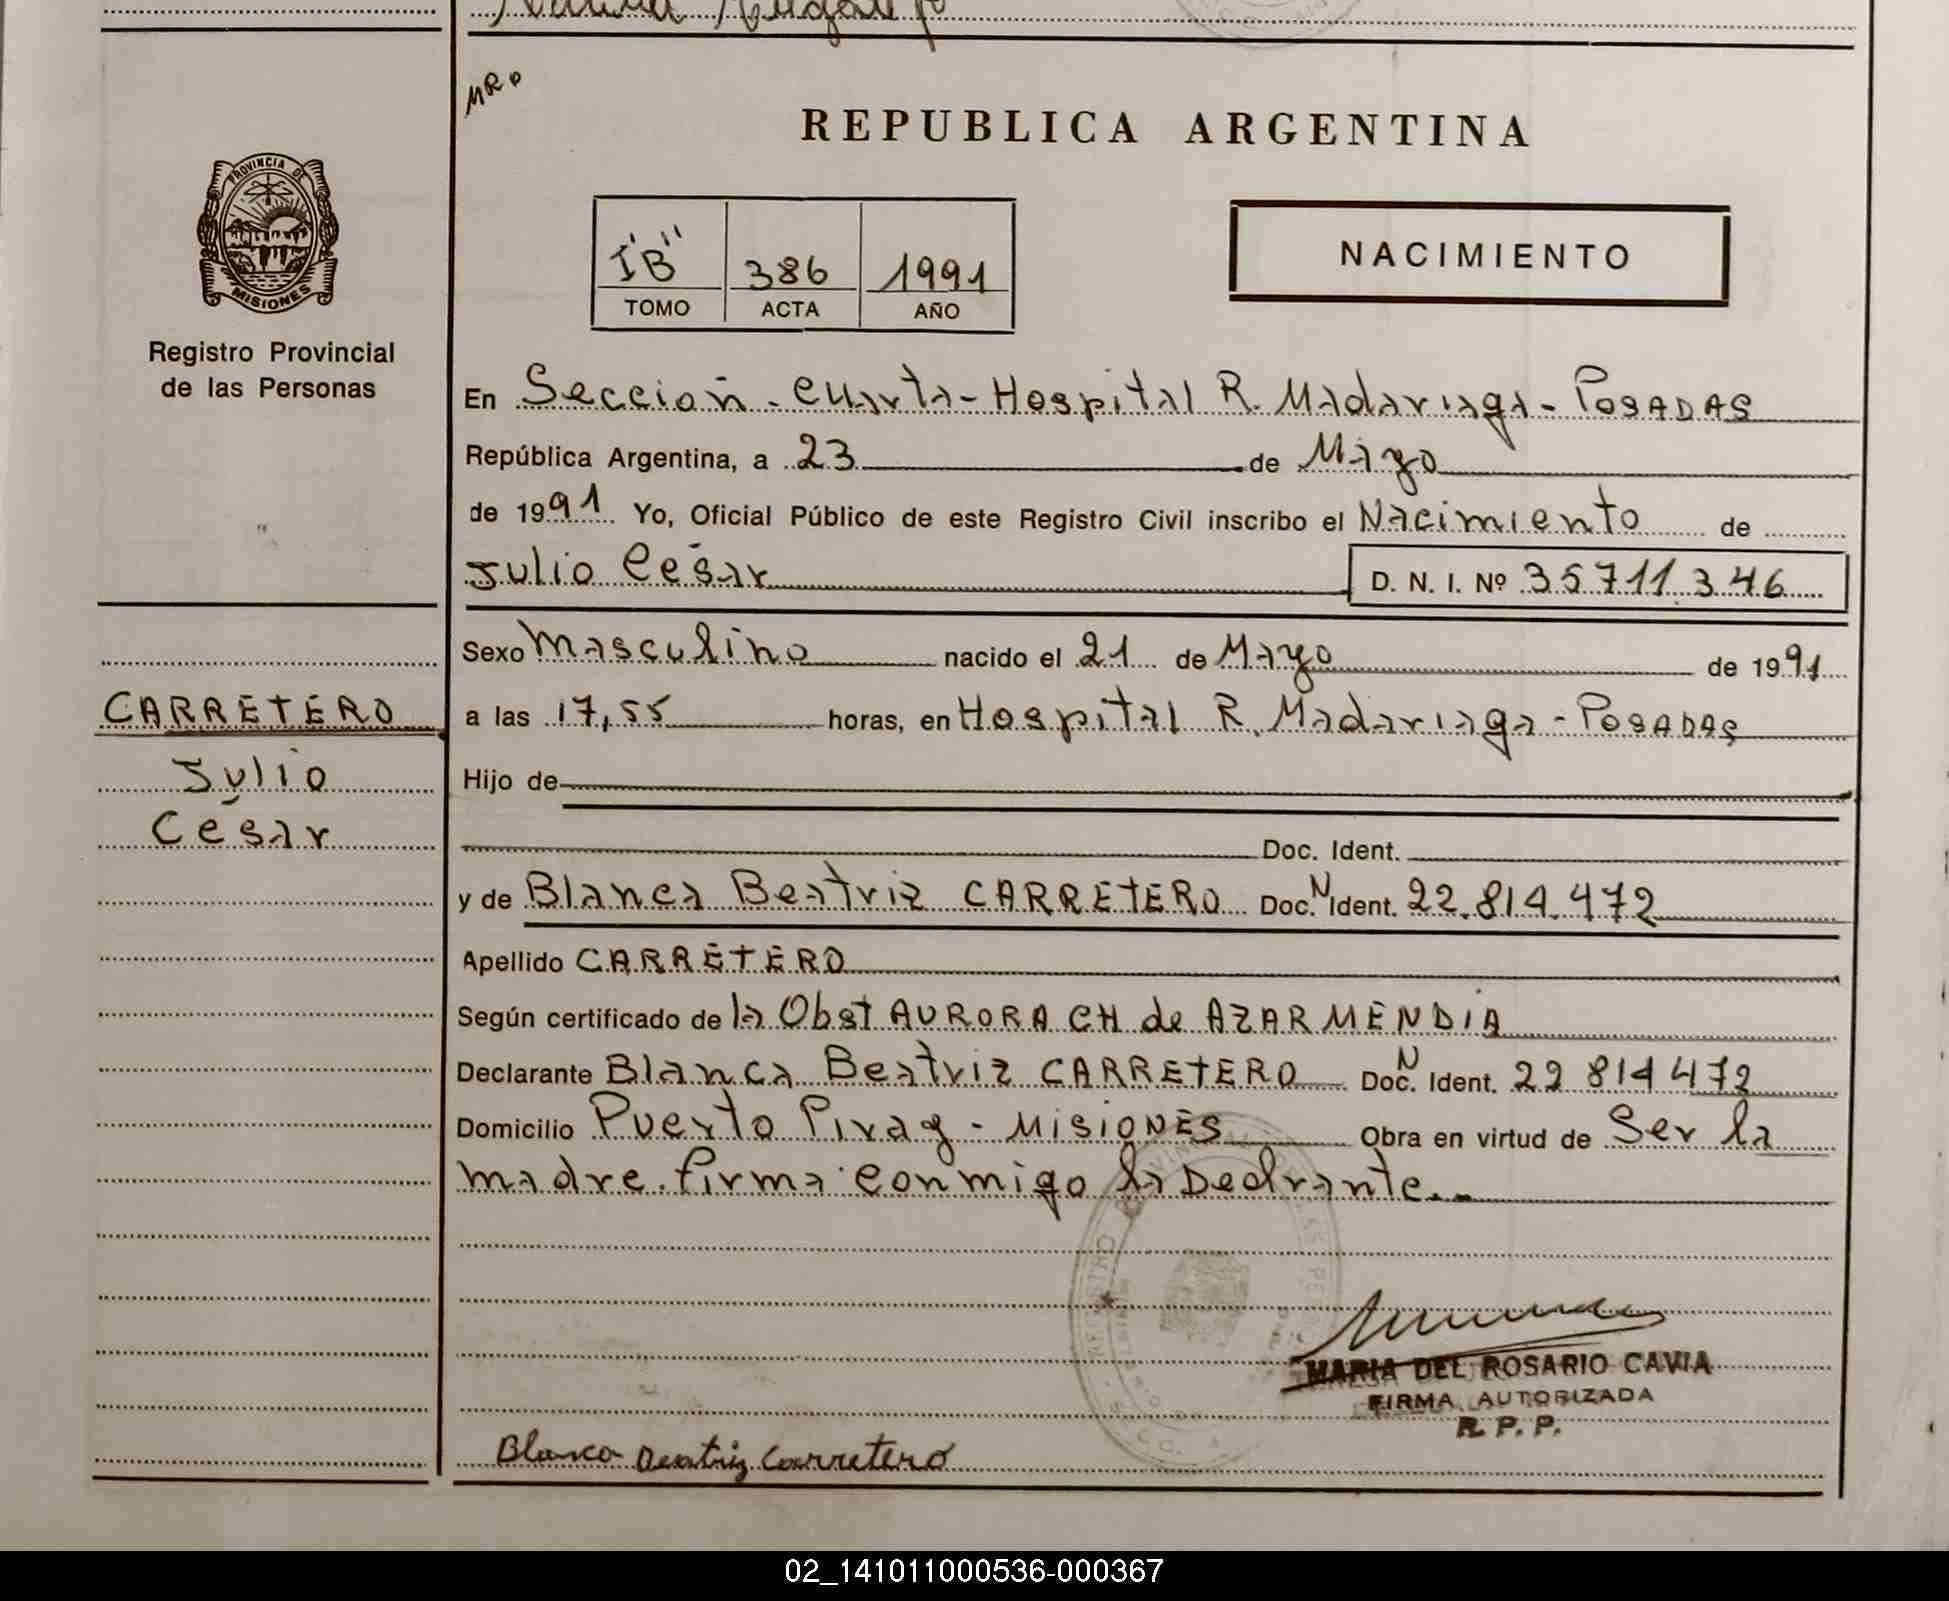 MRD
REPUBLICA ARGENTINA
PROVINCIA DE
MISIONES
Registro Provincial
de las Personas
I "B" 386 1991
TOMO ACTA AÑO
NACIMIENTO
En Sección - Cuarta - Hospital R. Madariaga - POSADAS
República Argentina, a 23 de Mayo
de 1991 Yo, Oficial Público de este Registro Civil inscribo el Nacimiento de
Julio César D. N. I. Nº 35711.346
Sexo Masculino nacido el 21 de Mayo de 1991
CARRETERO
Julio
César
a las 17,55 horas, en Hospital R. Madariaga - POSADAS
Hijo de
Doc. Ident.
y de Blanca Beatriz CARRETERO Doc. N Ident. 22.814.472
Apellido CARRETERO
Según certificado de la Obst AURORA CH de AZARMENDIA
Declarante Blanca Beatriz CARRETERO Doc. N Ident. 22 814 472
Domicilio Puerto Piray - MISIONES Obra en virtud de Ser la
madre. firma conmigo la Declrante..
MARIA DEL ROSARIO CAVIA
FIRMA AUTORIZADA
R. P. P.
Blanca Beatriz Carretero
02_141011000536-000367